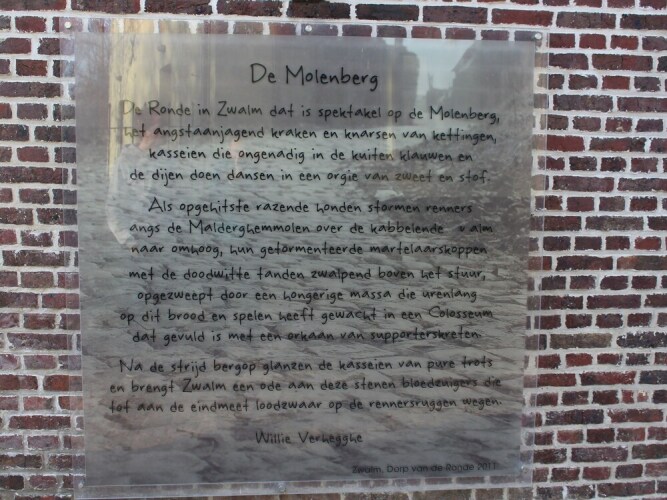 De Molenberg
De Ronde in Zwalm dat is spektakel op de Molenberg,
het angstaanjagend kraken en knarsen van kettingen,
kasseien die ongenadig in de kuiten klauwen en
de dijen doen dansen in een orgie van zweet en stof.
Als opgehitste razende honden stormen renners
angs de Malderghemmolen over de kabbelende alm
naar omhoog, hun getormenteerde martelaarskoppen
met de doodwitte tanden zwalpend boven het stuur,
opgezweept door een hongerige massa die urenlang
op dit brood en spelen heeft gewacht in een Colosseum
dat gevuld is met een orkaan van supporterskreten.
Na de strijd bergop glanzen de kasseien van pure trots
en brengt Zwalm een ode aan deze stenen bloedzuigers die
tot aan de eindmeet loodzwaar op de rennersruggen wegen.
Willie Verhegghe
Zwalm, Dorp van de Ronde 2017